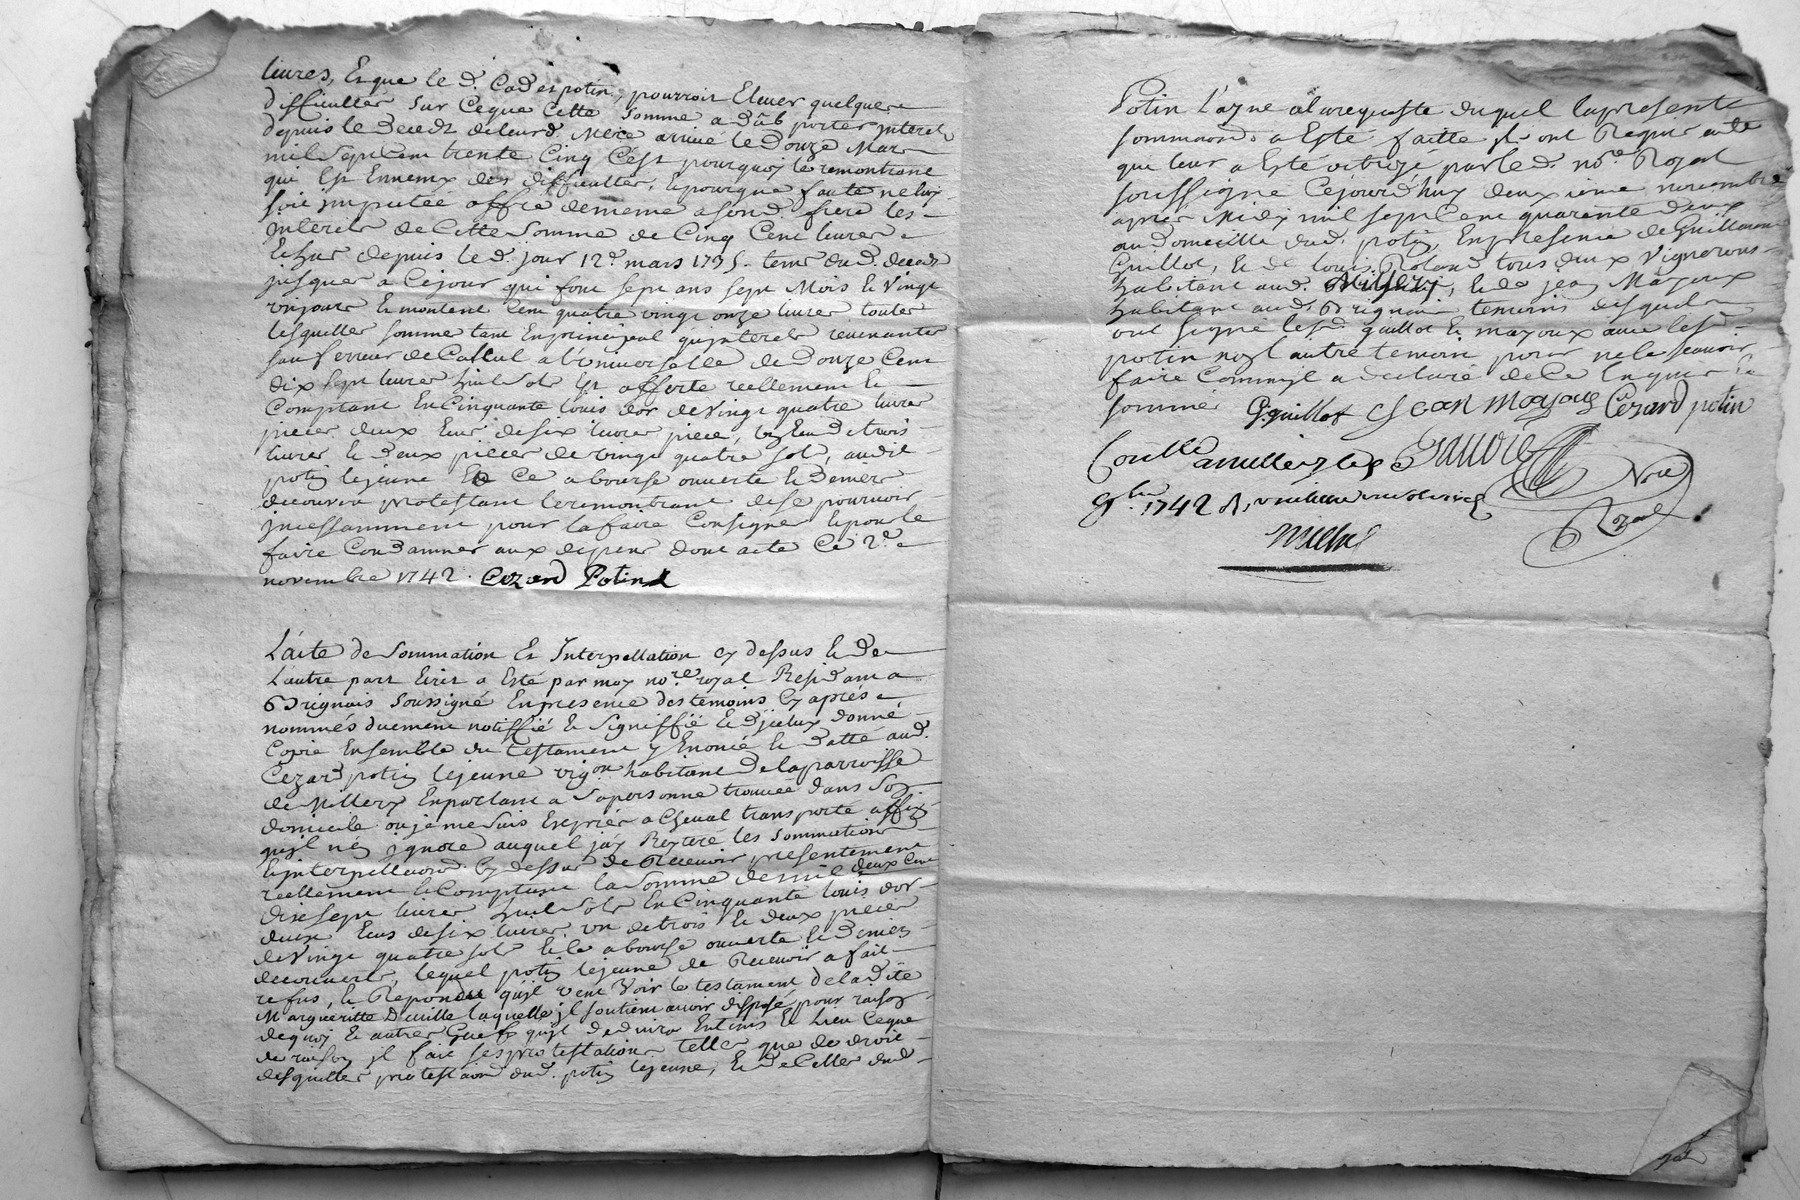 livres, Et que le d. Cadet potin, pourroit Elever quelques
difficultés sur Ceque Cette somme a dûb porter jnterets
depuis le deceds deleurd. Mere arrivé le Douze Mars
mil sept Cent trente Cinq C'est pourquoy le remontrant
qui Est Ennemy des difficultés, Et pourque faute ne luy
soit jmputée offre de meme a son d. frere les
jnterets de Cette somme de Cinq Cent livres
Echus depuis le d. jour 12e. mars 1735. tems du d. deceds
jusques a Cejour qui font sept ans sept Mois Et Vingt
un jours Et montent Cent quatre vingt onze livres toutes
lesquelles sommes tant En principal qu'jnterets revenantes
sauf erreur de Calcul a l'universelle de Douze Cent
dix sept livres huit sols Est offerte reellement Et
Comptant En Cinquante louis d'or de Vingt quatre livres
pieces deux Ecus de six livres piece, un Ecu de trois
livres Et deux pieces de vingt quatre sol, audit
potin lejeune Et Ce a bourse ouverte Et Deniers
decouverts protestant le remontrant de se pourvoir
jncessamment pour la faire Consigner Et pour le
faire Condamner aux depens dont acte Ce 2e.
novembre 1742. Cezard Potin
L'acte de Sommation Et Interpellation cy dessus Et de
L'autre part Ecrit a Esté par moy no.re royal Residant a
Brignais soussigné En presence des temoins Cy aprés
nommés duement notiffié Et Signiffié Et d'jceluy donné
Copie Ensemble du testament y Enoncé Et datté aud.
Cezard potin lejeune vig.on habitant de la parroisse
de Millery En parlant a sa personne trouvée dans son
domicile ou je me suis Exprés a Cheval transporté affin
qu'jl n'En jgnore auquel j'ay Reyteré les sommations
Et jnterpellaons. Cy dessus de Recevoir presentement
reellement Et Comptant la somme de mil deux Cent
dix sept livres huit sols En Cinquante louis d'or
deux Ecus de six livres un de trois Et deux pieces
de Vingt quatre sols Et Ce a bourse ouverte Et Deniers
decouverts, lequel potin lejeune de Recevoir a fait
refus, Et Repondu qu'jl veut Voir le testament de la dite
Margueritte Deville laquelle jl soutient avoir disposé, pour raison
dequoy Et autres Griefs qu'jl deduira En tems Et Lieu Ceque
de raison jl fait ses protestations telles que de droit
desquelles protestaons dud. potin lejeune, Et de Celles dud.
Potin L'ayné a la requeste duquel la presente
sommaon. a Esté faitte jls ont Requis acte
qui leur a Esté octroyé par le d. no.re Royal
soussigné Cejourd'huy deuxieme novembre
aprés Midy mil sept Cent quarante deux
au Domicille dud. potin, En presence de Guillaume
Guillot, Et de louis Roland tous deux Vignerons
habitant aud. Millery, Et de jean Mazoux
habitant aud. Brignais temoins desquels
ont signé lesd. guillot Et mazoux avec lesd.
potin no.n l'autre temoin pour ne le scavoir
faire Comm'jl a declaré de Ce Enquis Et
sommés G. guillot Jean mazoux Cezard potin
Conlle a millery le 3 Gauvie
9bre 1742 R. Nre
Royal